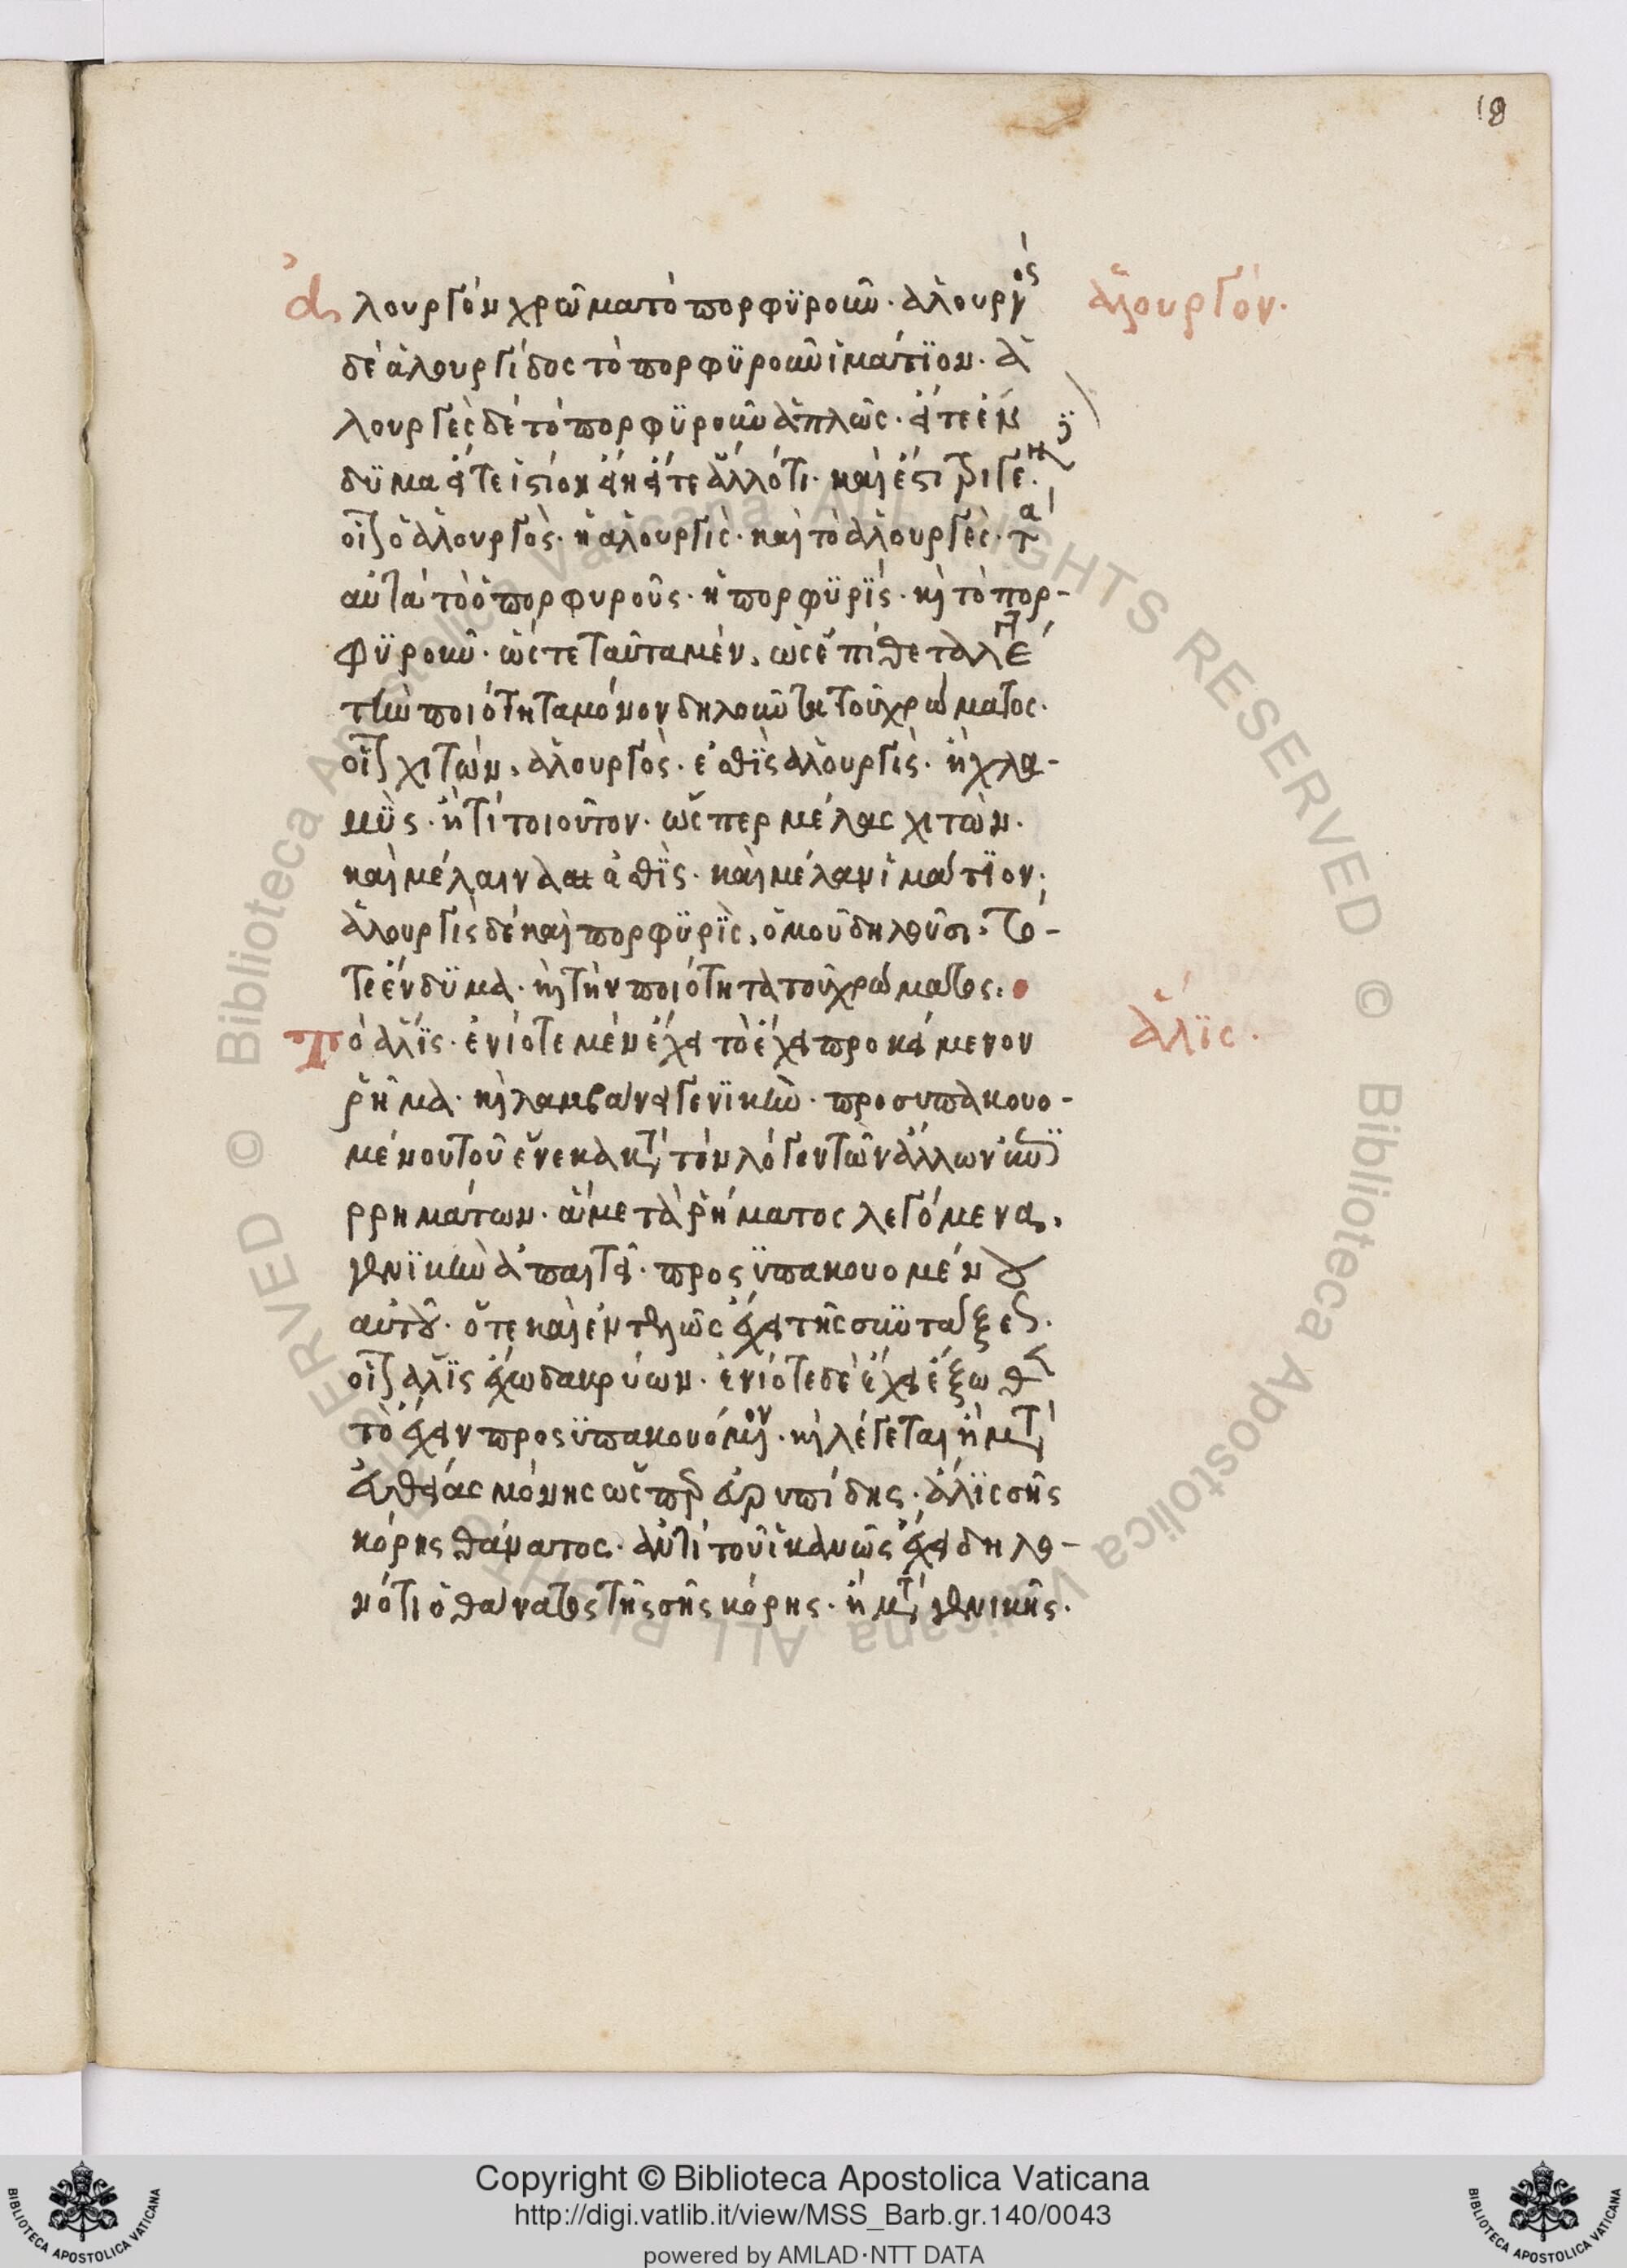 18
ἁλουργόν χρῶμα τὸ πορφϋροῦν · ἁλουργὸς
ἁλουργόν.
δὲ ἁλουργίδος τὸ πορφϋροῦν ἱμάτϊον · ἁ
λουργὲς δὲ τὸ πορφϋροῦν ἁπλῶς · εἴτε ἔν
δϋμα εἴτε ἱστίον εἴη εἴτε ἄλλό τι · καὶ ἔστι τριγε
οἷον ὁ ἁλουργὸς · ἡ ἁλουργὶς · καὶ τὸ ἁλουργὲς · τὰ
αὐτὰ τὸ ὁ πορφυροῦς · ἡ πορφϋρῒς · καὶ τὸ πορ-
φϋροῦν · ὥστε ταῦτα μὲν, ὡς ἐπίθετα λε
τὴν ποιότητα μόνον δηλοῦντα τοῦ χρώματος ·
οἷον χιτών, ἁλουργὸς · ἐσθῒς ἁλουργὶς · ἢ χλα-
μῢς · ἤ τι τοιοῦτον · ὥσπερ μέλας χιτὼν ·
καὶ μέλαινα ἐσθῒς · καὶ μέλαν ἱμάτϊον ·
ἁλουργὶς δὲ καὶ πορφϋρῒς, ὁμοῦ δηλοῦσι · τό-
τε ἔνδϋμα · καὶ τὴν ποιότητα τοῦ χρώματος ·
τὸ ἅλϊς · ἐνίοτε μὲν ἔχει τὸ ἔχει προκείμενον
ἅλϊς ·
ῥῆμα · καὶ λαμβάνει γενϊκὴν · προσυπακουο-
μένου τοῦ ἕνεκα κατὰ τὸν λόγον τῶν ἄλλων
ρρημάτων · ἃ μετὰ ῥήματος λεγόμενα,
γενϊκὴν ἀπαιτεῖ · προσϋπακουομένου
αὐτοῦ · ὅτε καὶ ἐντελῶς ἔχει τῆς συντάξεως ·
οἷον ἅλϊς ἔχω δακρύων · ἐνίοτε δὲ ἔχει ἔξωθεν
τὸ ἔχειν προσϋπακουόμενον · καὶ λέγεται ἢ μετ
εὐθείας μόνης ὥσπερ εὐρυπίδης · ἅλϊς σῆς
κόρης θάνατος · ἀντὶ τοῦ ἱκανῶς ἔχει δηλο-
νότι ὁ θάνατος τῆς σῆς κόρης · ἢ μετὰ γενικῆς ·
Copyright © Biblioteca Apostolica Vaticana
http://digi.vatlib.it/view/MSS_Barb.gr.140/0043
powered by AMLAD·NTT DATA
BIBLIOTECA APOSTOLICA VATICANA
BIBLIOTECA APOSTOLICA VATICANA
© Biblioteca Apostolica Vaticana ALL RIGHTS RESERVED © Biblioteca Apostolica Vaticana ALL RIGHTS RESERVED